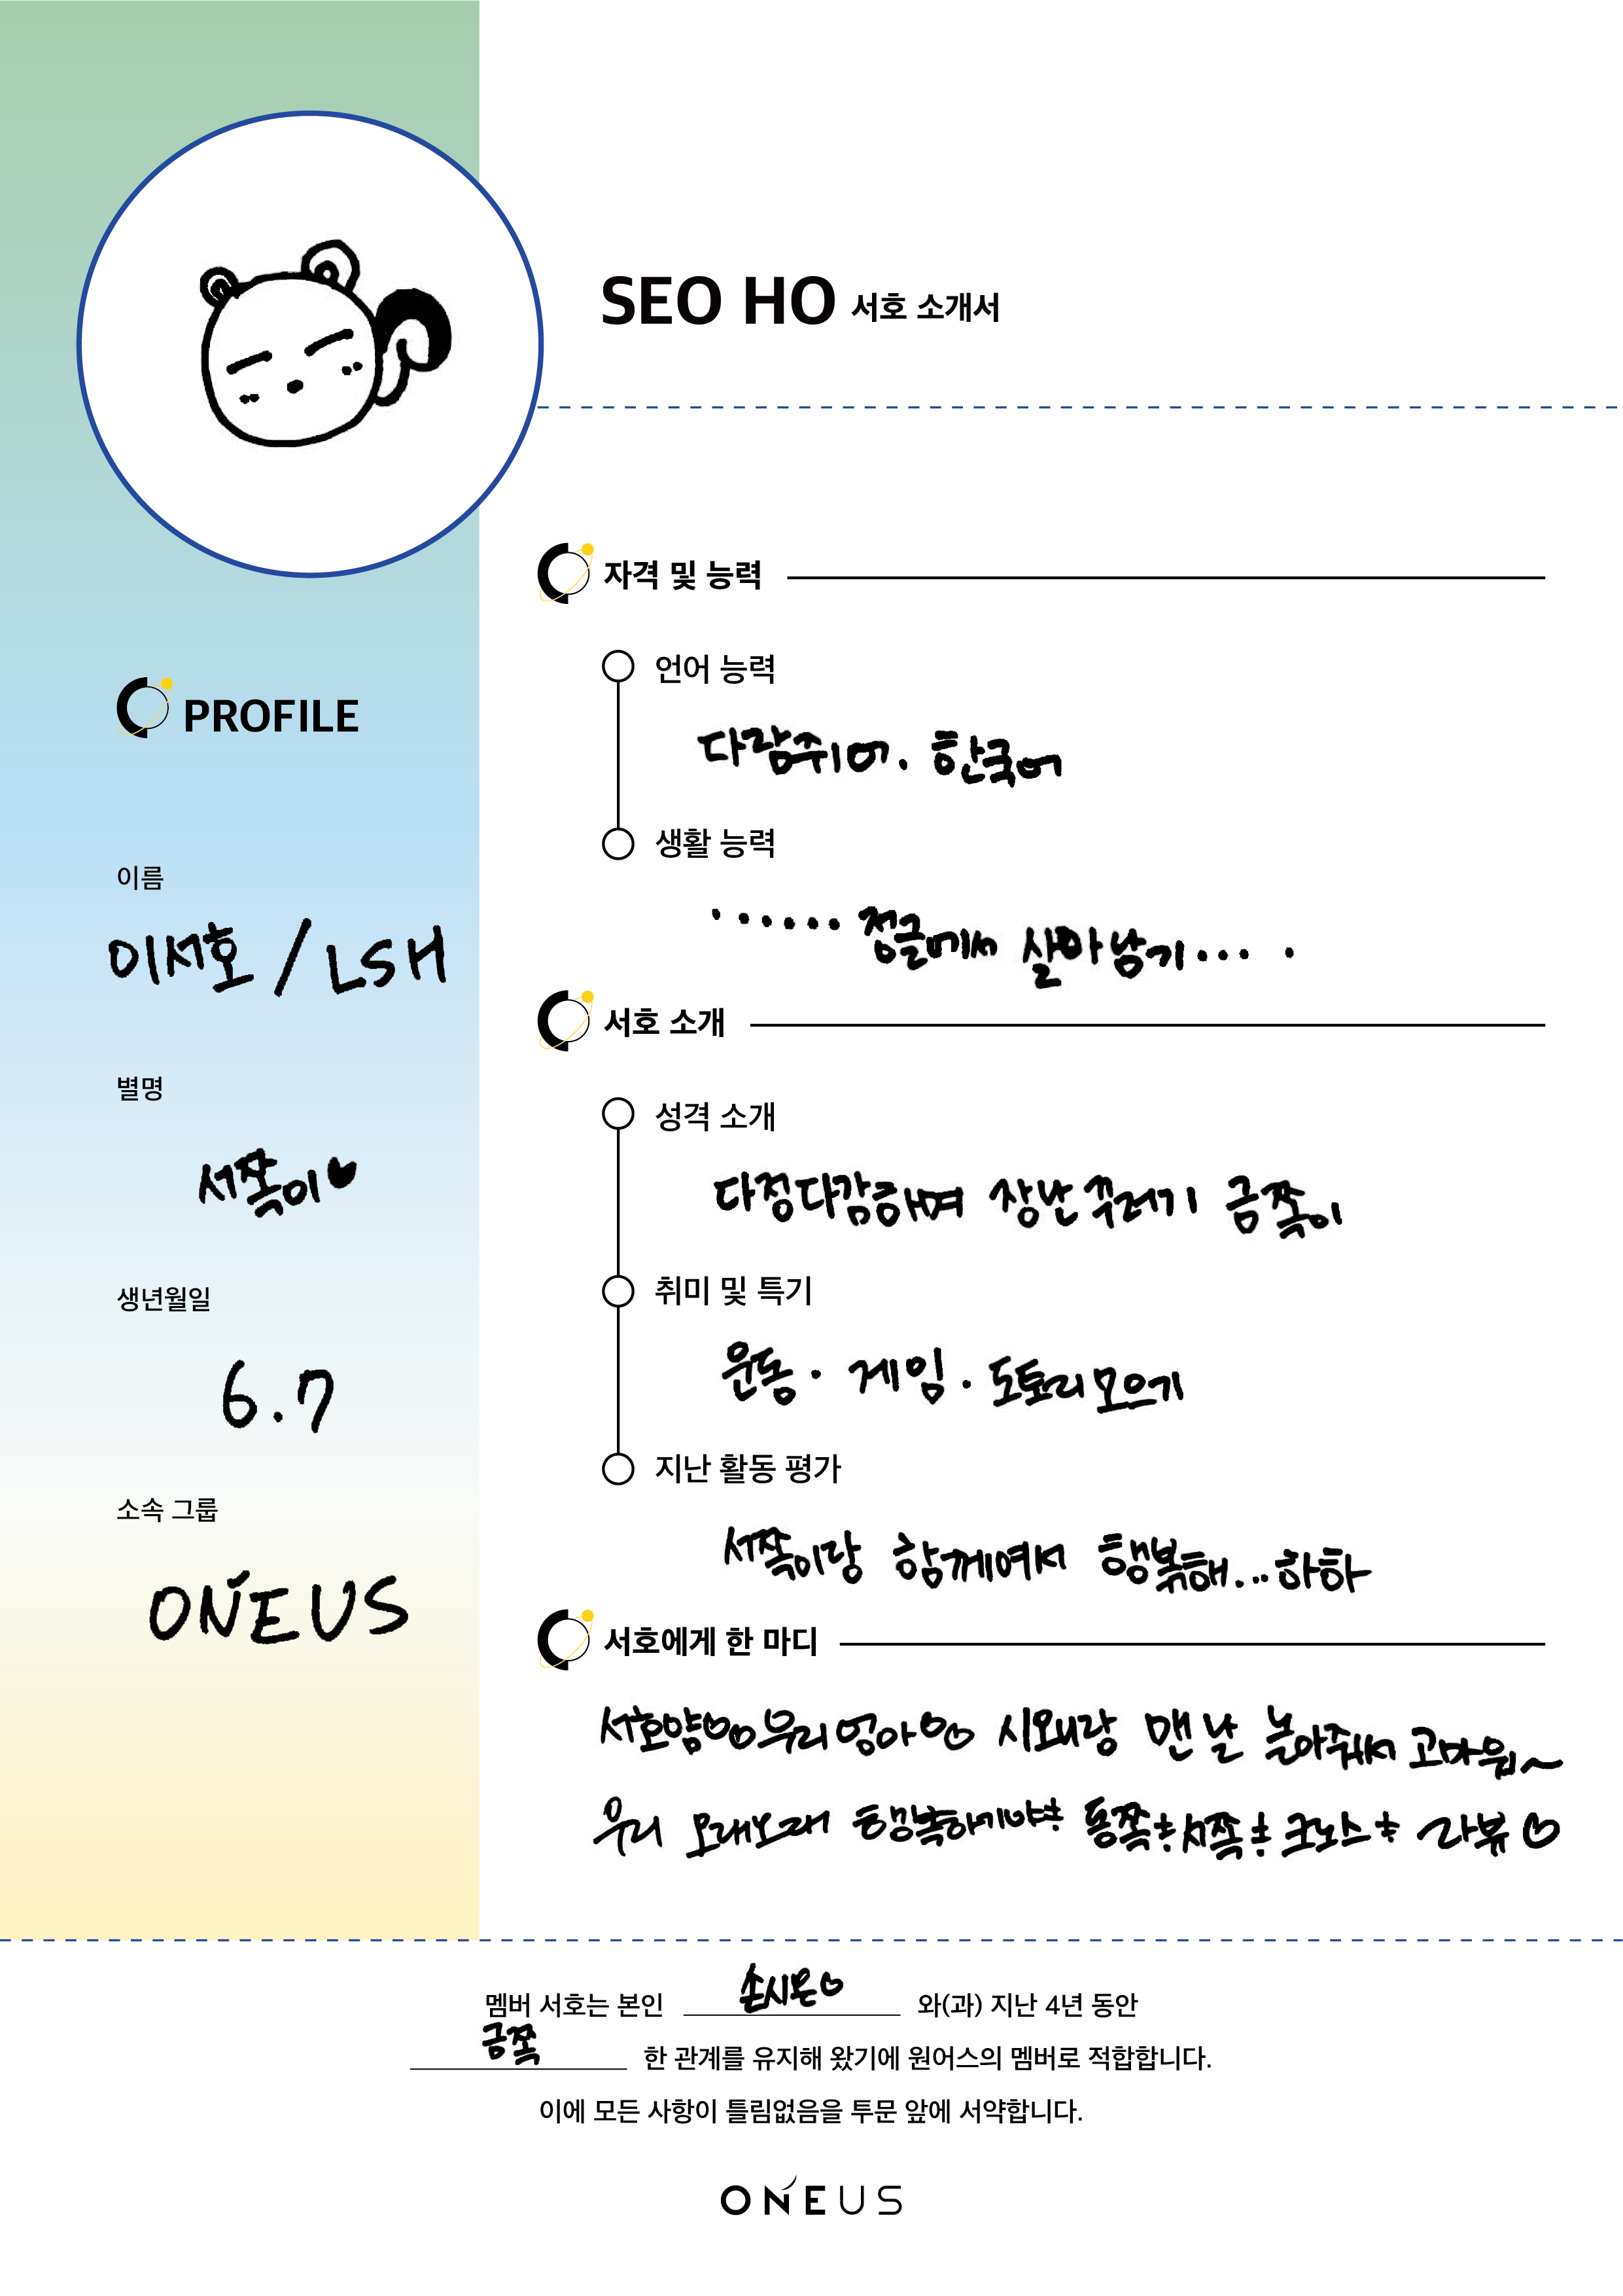 SEO HO 서호 소개서
PROFILE
이름
이서호 / LSH
별명
서쪽이♥
생년월일
6.7
소속 그룹
ONEUS
자격 및 능력
언어 능력
다람쥐어. 한국어
생활 능력
...... 정글에서 살아남기... .
서호 소개
성격 소개
다정다감하며 장난꾸러기 금쪽이
취미 및 특기
운동. 게임. 도토리 모으기
지난 활동 평가
서쪽이랑 함께여서 행복해... 하하
서호에게 한 마디
서호얌♡♡우리 엉아♡♡ 시오니랑 맨날 놀아줘서 고마워~
우리 오래오래 행복하기야 동쪽 서쪽 라뷰♡
멤버 서호는 본인 손시온♡ 와(과) 지난 4년 동안
금쪽 한 관계를 유지해 왔기에 원어스의 멤버로 적합합니다.
이에 모든 사항이 틀림없음을 투문 앞에 서약합니다.
ONEUS